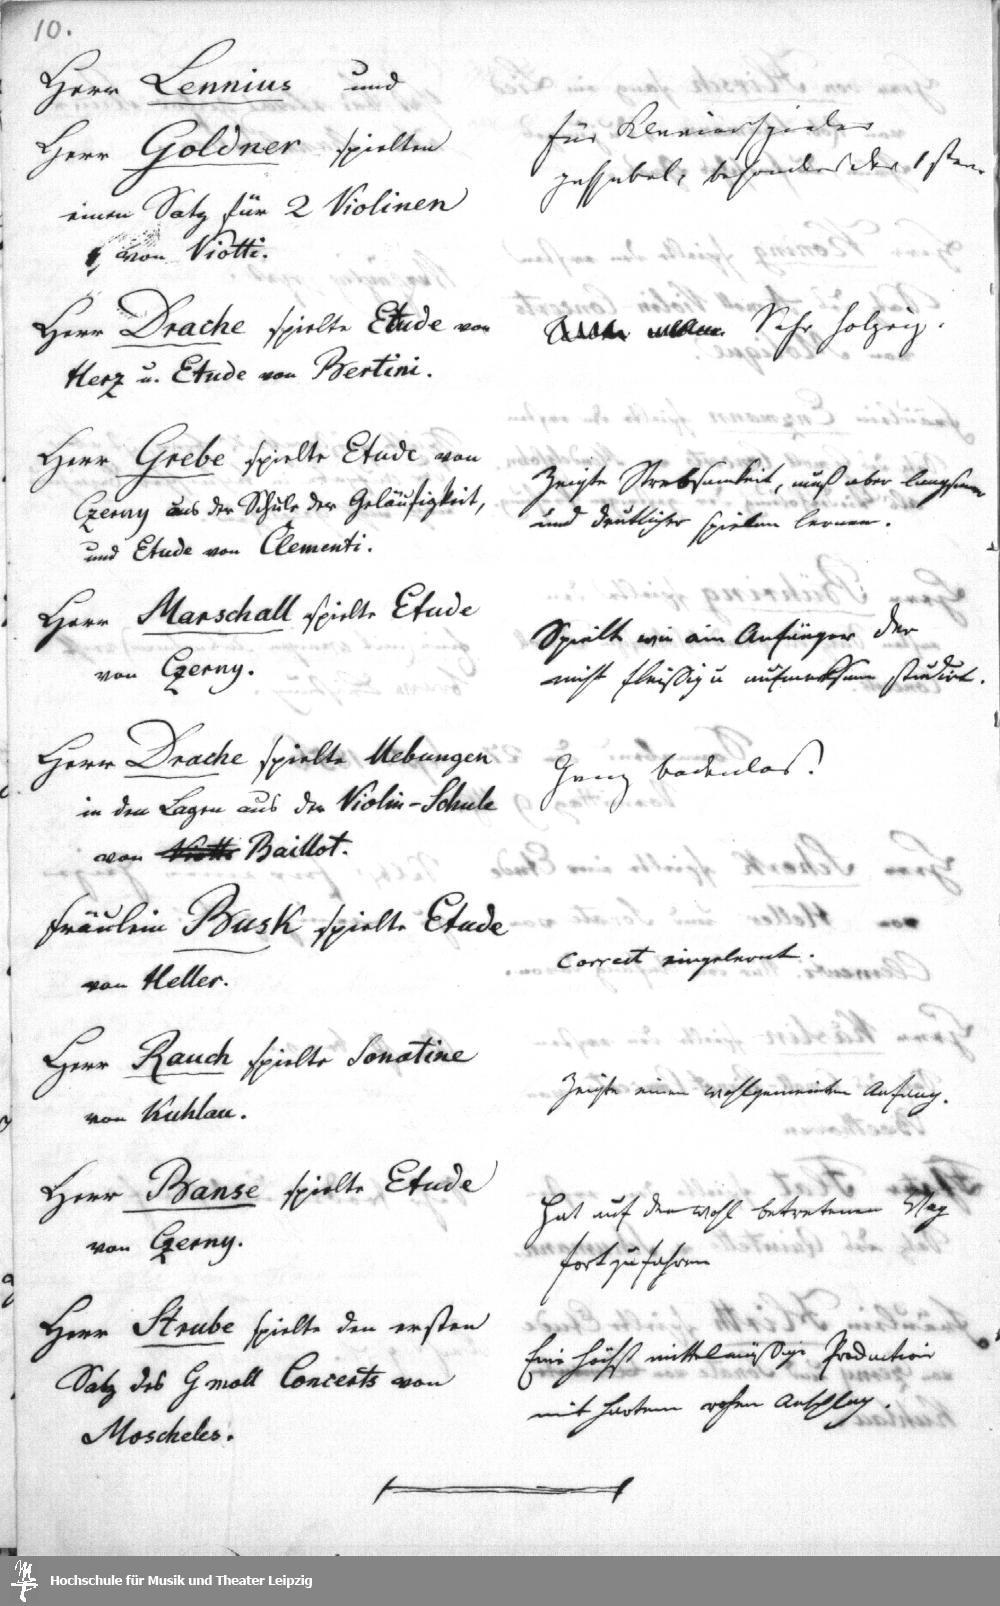 10.
Herr Lennius und
Herr Goldner spielten
einen Satz für 2 Violinen
von Viotti.
für Klavierspieler
passabel, besonders der 1ste.
Herr Drache spielte Etude von
Herz u. Etude von Bertini.
Sehr holzig.
Herr Grebe spielte Etude von
Czerny aus der Schule der Geläufigkeit,
und Etude von Clementi.
Zeigte Strebsamkeit, muß aber langsamer
und deutlicher spielen lernen.
Herr Marschall spielte Etude
von Czerny.
Spielt wie ein Anfänger der
nicht fleißig u aufmerksam studirt.
Herr Drache spielte Uebungen
in den Lagen aus der Violin-Schule
von Viotti Baillot.
Ganz bodenlos!
Fräulein Busk spielte Etude
von Heller.
Correct eingelernt.
Herr Rauch spielte Sonatine
von Kuhlau.
Zeigte einen wohlgemeinten Anfang.
Herr Banse spielte Etude
von Czerny.
Hat auf dem wohl betretenen Weg
fortzufahren
Herr Strube spielte den ersten
Satz des G moll Concerts von
Moscheles.
Eine höchst mittelmäßige Production
mit hartem rohen Anschlag.
Hochschule für Musik und Theater Leipzig